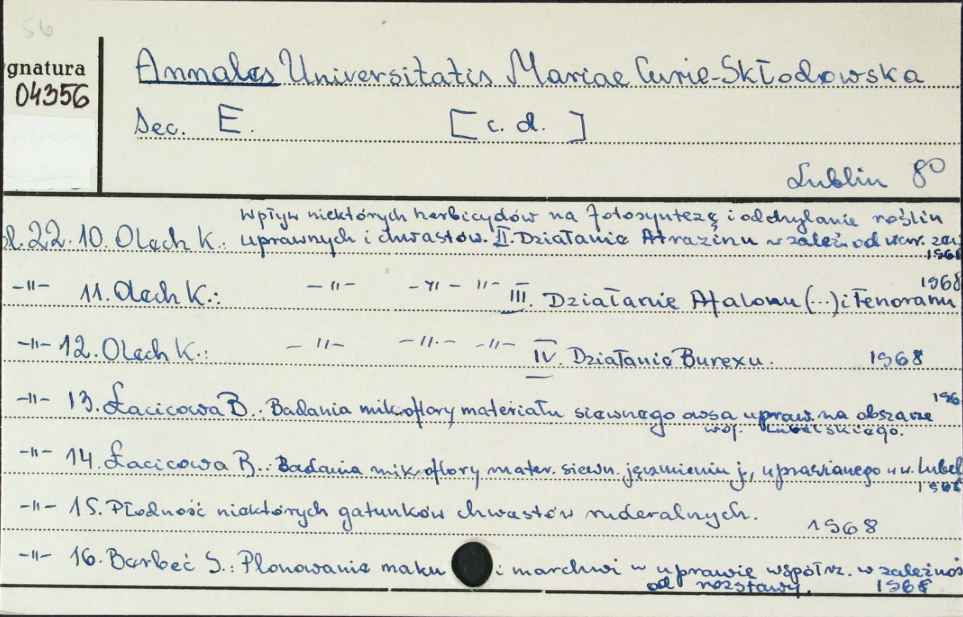 56
gnatura
04356
Annales Universitatis Mariae Curie-Skłodowska
Sec. E. [c. d.]
Lublin 8º
Wpływ niektórych herbicydów na fotosyntezę i oddychanie roślin
22. 10. Olech K.: uprawnych i chwastów. II. Działanie Atrazinu w zależ. od war. zew.
1968
-"- 11. Olech K.: -"- -"- -"- III. Działanie Afalonu (...) i Fenoranu 1968
-"- 12. Olech K.: -"- -"- -"- IV. Działanie Burexu. 1968
-"- 13. Łacicowa B.: Badania mikoflory materiału siewnego owsa upraw. na obszarze 196
woj. Lubelskiego.
-"- 14. Łacicowa B.: Badania mikoflory mater. siewn. jęczmienia j. uprawianego w w. Lubel
1968
-"- 15. Płodność niektórych gatunków chwastów ruderalnych. 1968
-"- 16. Barbeć S.: Plonowanie maku i marchwi w uprawie współrz. w zależnoś
od rozstawy. 1968